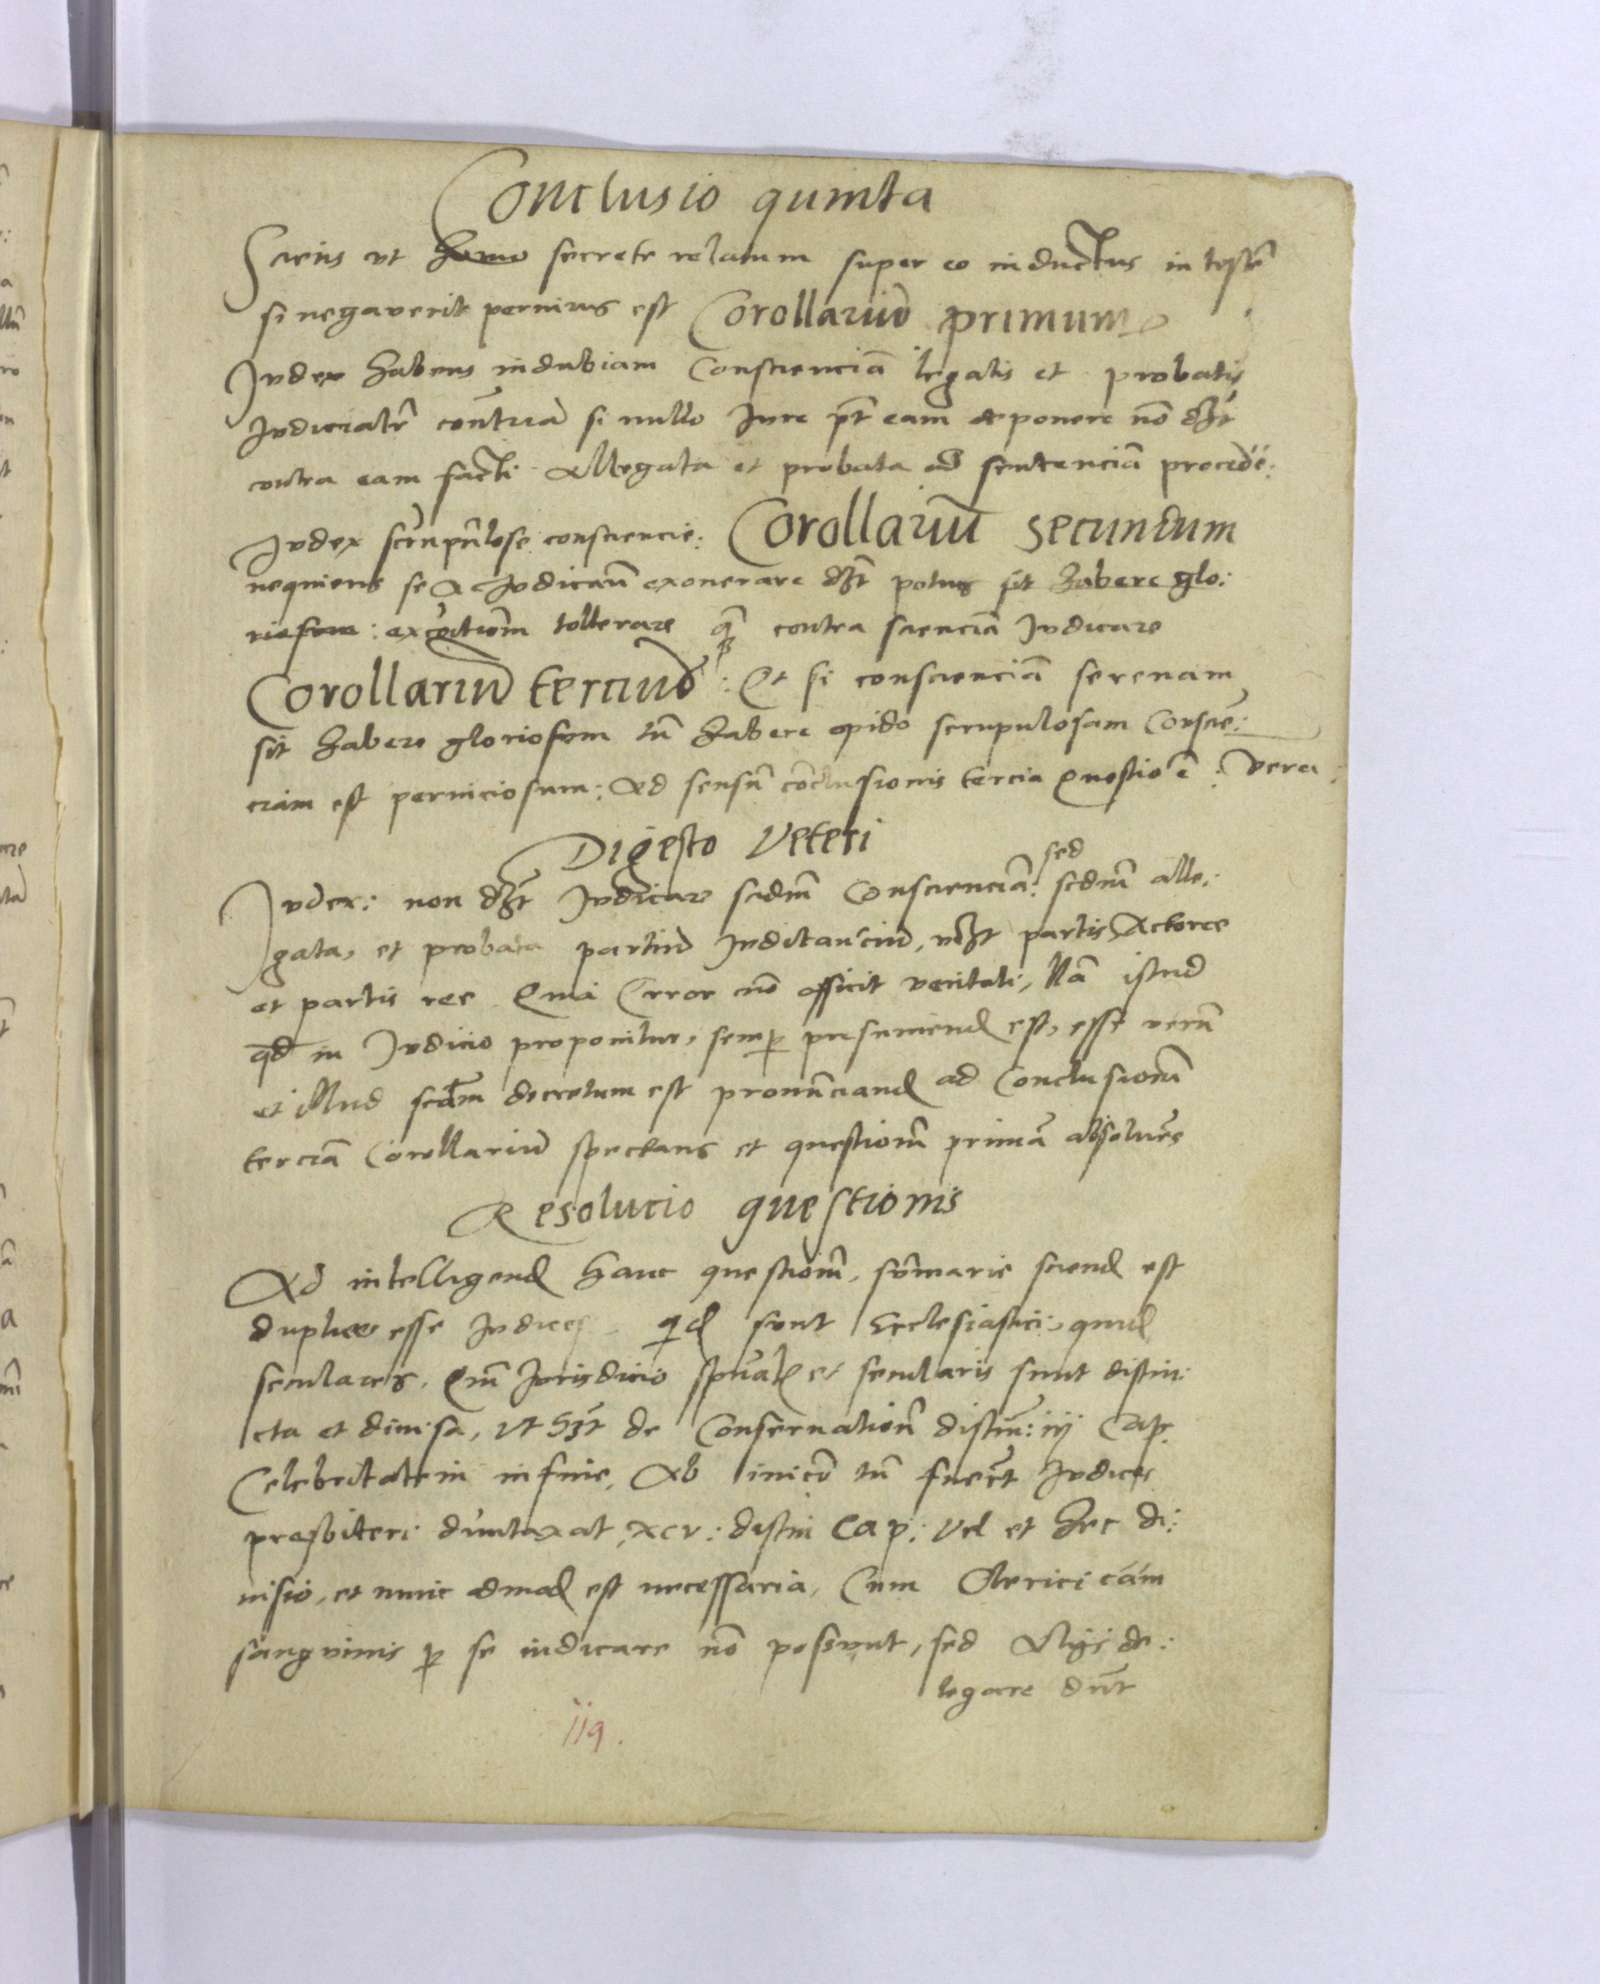 Conclusio quinta
Sciens ut homo secrete relatum super eo inductus in testē
si negaverit periurus est Corollariū primum
Judex habens indubiam Conscienciā legatis et probatis
Judicialr̄ contrariā si nullo Jure pt̄ eam deponere nō dȝt
contra eam facti Allegata et probata ad sentenciā procedē:
Judex scrupulose consciencie: Corollariū secundum
nequiens se a Judicatū exonerare dȝt potius sit habere glo:
riosam: exitium tollerare qm̄ contra scienciā Judicare
Corollariū terciū: Et si conscienciā serenam
sit habere gloriosum tn̄ habere opido scrupulosam Conscie:
ciam est perniciosum: Ad sensū conclusionis tercia questio ē: vera:
Digesto Veteri
Judex: non dȝt Judicare scdm̄ Conscienciā: sed scdm̄ alle:
gata, et probata partiū partis Actoree
et partis ree Quia Error nō officit veritati, Nā istud
qd in Judicio proponitur, semp presumend est, esse verū
et illud scdam decretum est pronūnciand ad Conclusionē
terciā Corollariū spectans et questionē primā absolvēs
Resolucio questionis
Ad intelligend hanc questionē, sūmarie sciend est
duplices esse Judices qd sunt Ecclesiastici, quid
seculares, Qm̄ Jurisdicio spūal et secularis sunt distin:
cta et divisa, ut hȝt de Consecrationē distin: iij Cap.
Celebritatem in fine, Ab inicio tn̄ fuerūt Judices
presbiteri duntaxat, xcv: distin Cap: Vel et hec di:
uisio, et nunc admod est necessaria, Cum Clerici cām
sanguinis p se iudicare nō possunt, sed Alijs de:
legare dn̄t
119.